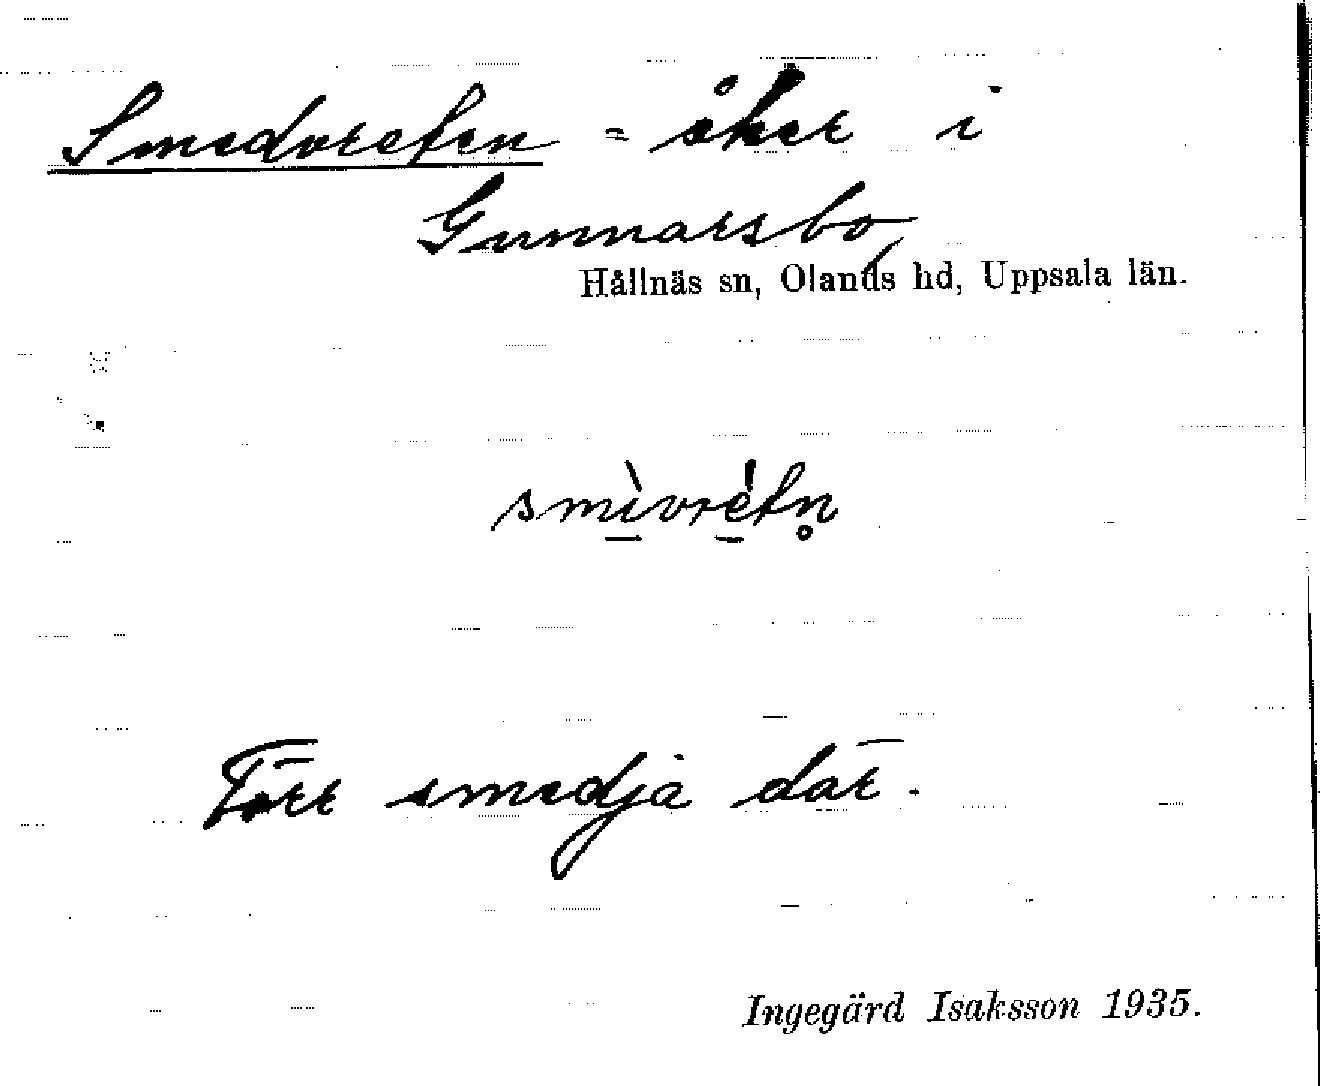 Smedvreten = åker i
Gunnarsbo,
Hållnäs sn, Olands hd, Uppsala län.
smìvrétn̥
Förr smedja där.
Ingegärd Isaksson 1935.